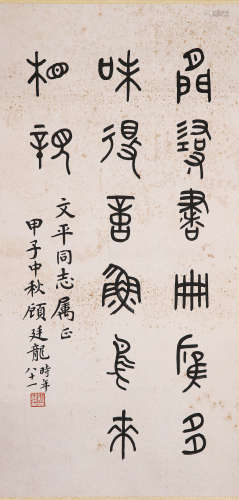 閒尋書冊應多
味得意魚鳥來
相親
文平同志属正
甲子中秋顧廷龍時年八十一